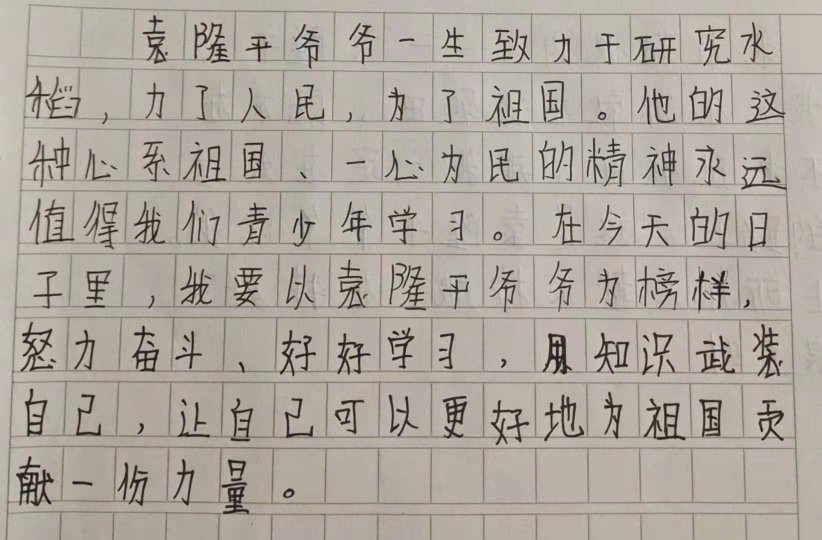 袁隆平爷爷一生致力于研究水
稻，为了人民，为了祖国。他的这
种心系祖国、一心为民的精神永远
值得我们青少年学习。在今天的日
子里，我要以袁隆平爷爷为榜样，
努力奋斗、好好学习，用知识武装
自己，让自己可以更好地为祖国贡
献一份力量。